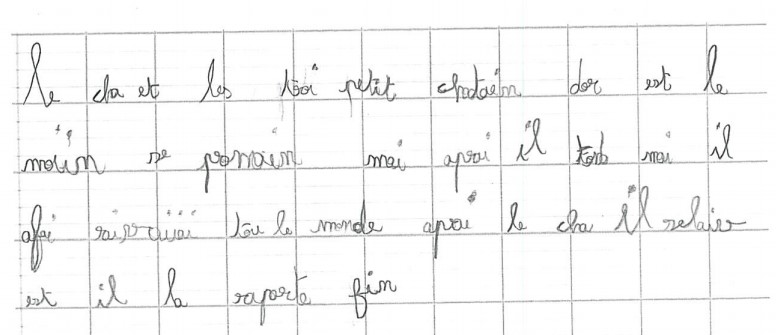 Le cha et les troi petit chataein dor est le
molin se pomain mai aprai il tonb mai il
afai tou le monde aprai le cha il relaier
est il la raporte fin